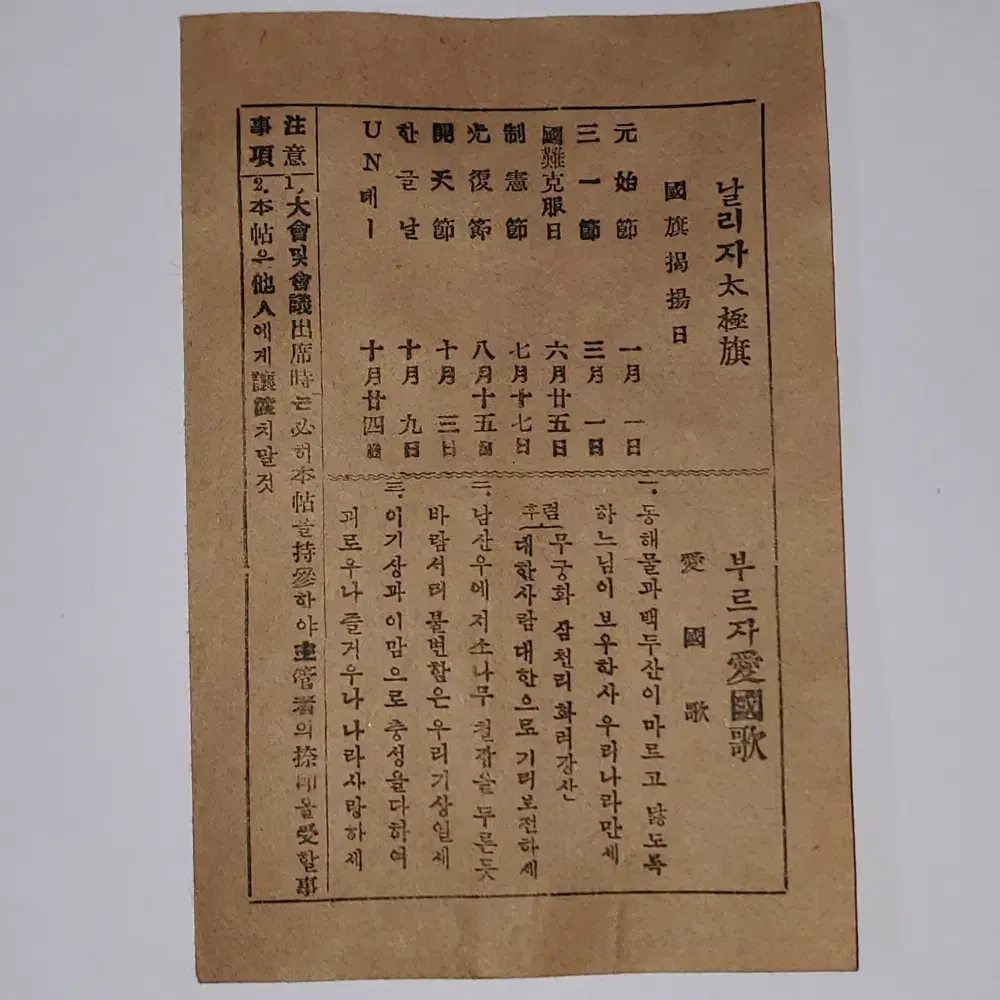 날리자太極旗
國旗揭揚日
元始節 一月 一日
三一節 三月 一日
國難克服日 六月廿五日
制憲節 七月十七日
光復節 八月十五日
開天節 十月 三日
한글날 十月 九日
UN데ー 十月廿四日
부르자愛國歌
愛國歌
一. 동해물과 백두산이 마르고 닳도록
하느님이 보우하사 우리나라만세
후렴 무궁화 삼천리 화려강산
대한사람 대한으로 기리보전하세
二. 남산우에 저소나무 철갑을 두른듯
바람서리 불변함은 우리기상일세
三. 이기상과 이맘으로 충성을다하여
괴로우나 즐거우나 나라사랑하세
注意事項
1. 大會및會議出席時는必히本帖을持參하야主管者의捺印을受할事
2. 本帖은他人에게讓渡치말것